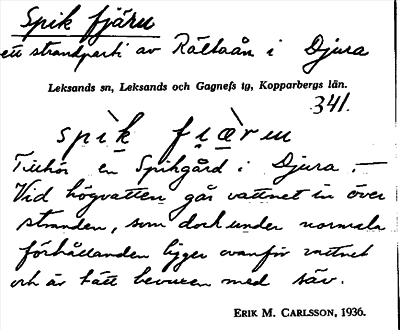 Spik fjäru
ett strandparti av Rältaån i Djura
Leksands sn, Leksands och Gagnefs tg, Kopparbergs län.
341.
spìk fìæru
Tillhör en Spikgård i Djura. —
Vid högvatten går vattnet in över
stranden, som dock under normala
förhållanden ligger ovanför vattnet
och är tätt bevuxen med säv.
ERIK M. CARLSSON, 1936.